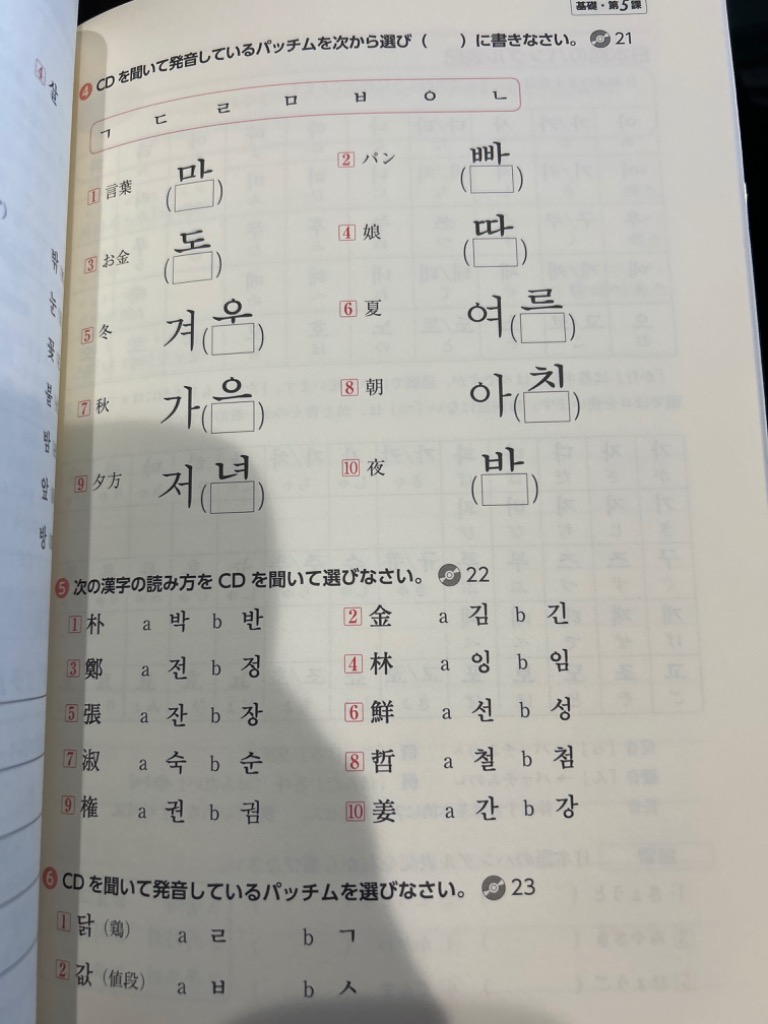 基礎・第5課
4 CDを聞いて発音しているパッチムを次から選び（　）に書きなさい。 21
ㄱ ㄷ ㄹ ㅁ ㅂ ㅇ ㄴ
1 言葉 마( ) 2 パン 빠( )
3 お金 도( ) 4 娘 따( )
5 冬 겨우( ) 6 夏 여르( )
7 秋 가으( ) 8 朝 아치( )
9 夕方 저녀( ) 10 夜 바( )
5 次の漢字の読み方をCDを聞いて選びなさい。 22
1 朴 a 박 b 반 2 金 a 김 b 긴
3 鄭 a 전 b 정 4 林 a 잉 b 임
5 張 a 잔 b 장 6 鮮 a 선 b 성
7 淑 a 숙 b 순 8 哲 a 철 b 첨
9 権 a 권 b 궘 10 姜 a 간 b 강
6 CDを聞いて発音しているパッチムを選びなさい。 23
1 닭（鶏） a ㄹ b ㄱ
2 값（値段） a ㅂ b ㅅ